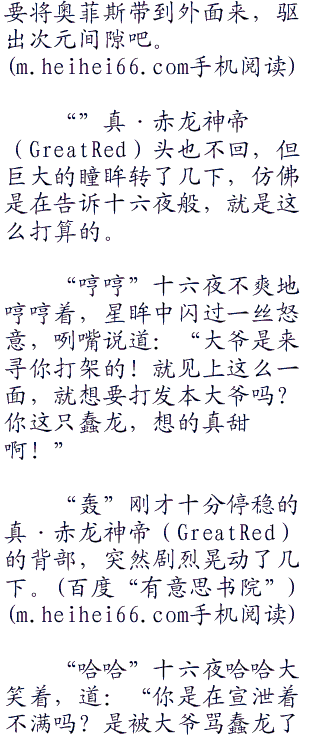 要将奥菲斯带到外面来，驱
出次元间隙吧。
(m.heihei66.com手机阅读)
“”真·赤龙神帝
（GreatRed）头也不回，但
巨大的瞳眸转了几下，仿佛
是在告诉十六夜般，就是这
么打算的。
“哼哼”十六夜不爽地
哼哼着，星眸中闪过一丝怒
意，咧嘴说道：“大爷是来
寻你打架的！就见上这么一
面，就想要打发本大爷吗？
你这只蠢龙，想的真甜
啊！”
“轰”刚才十分停稳的
真·赤龙神帝（GreatRed）
的背部，突然剧烈晃动了几
下。(百度“有意思书院”)
(m.heihei66.com手机阅读)
“哈哈”十六夜哈哈大
笑着，道：“你是在宣泄着
不满吗？是被大爷骂蠢龙了